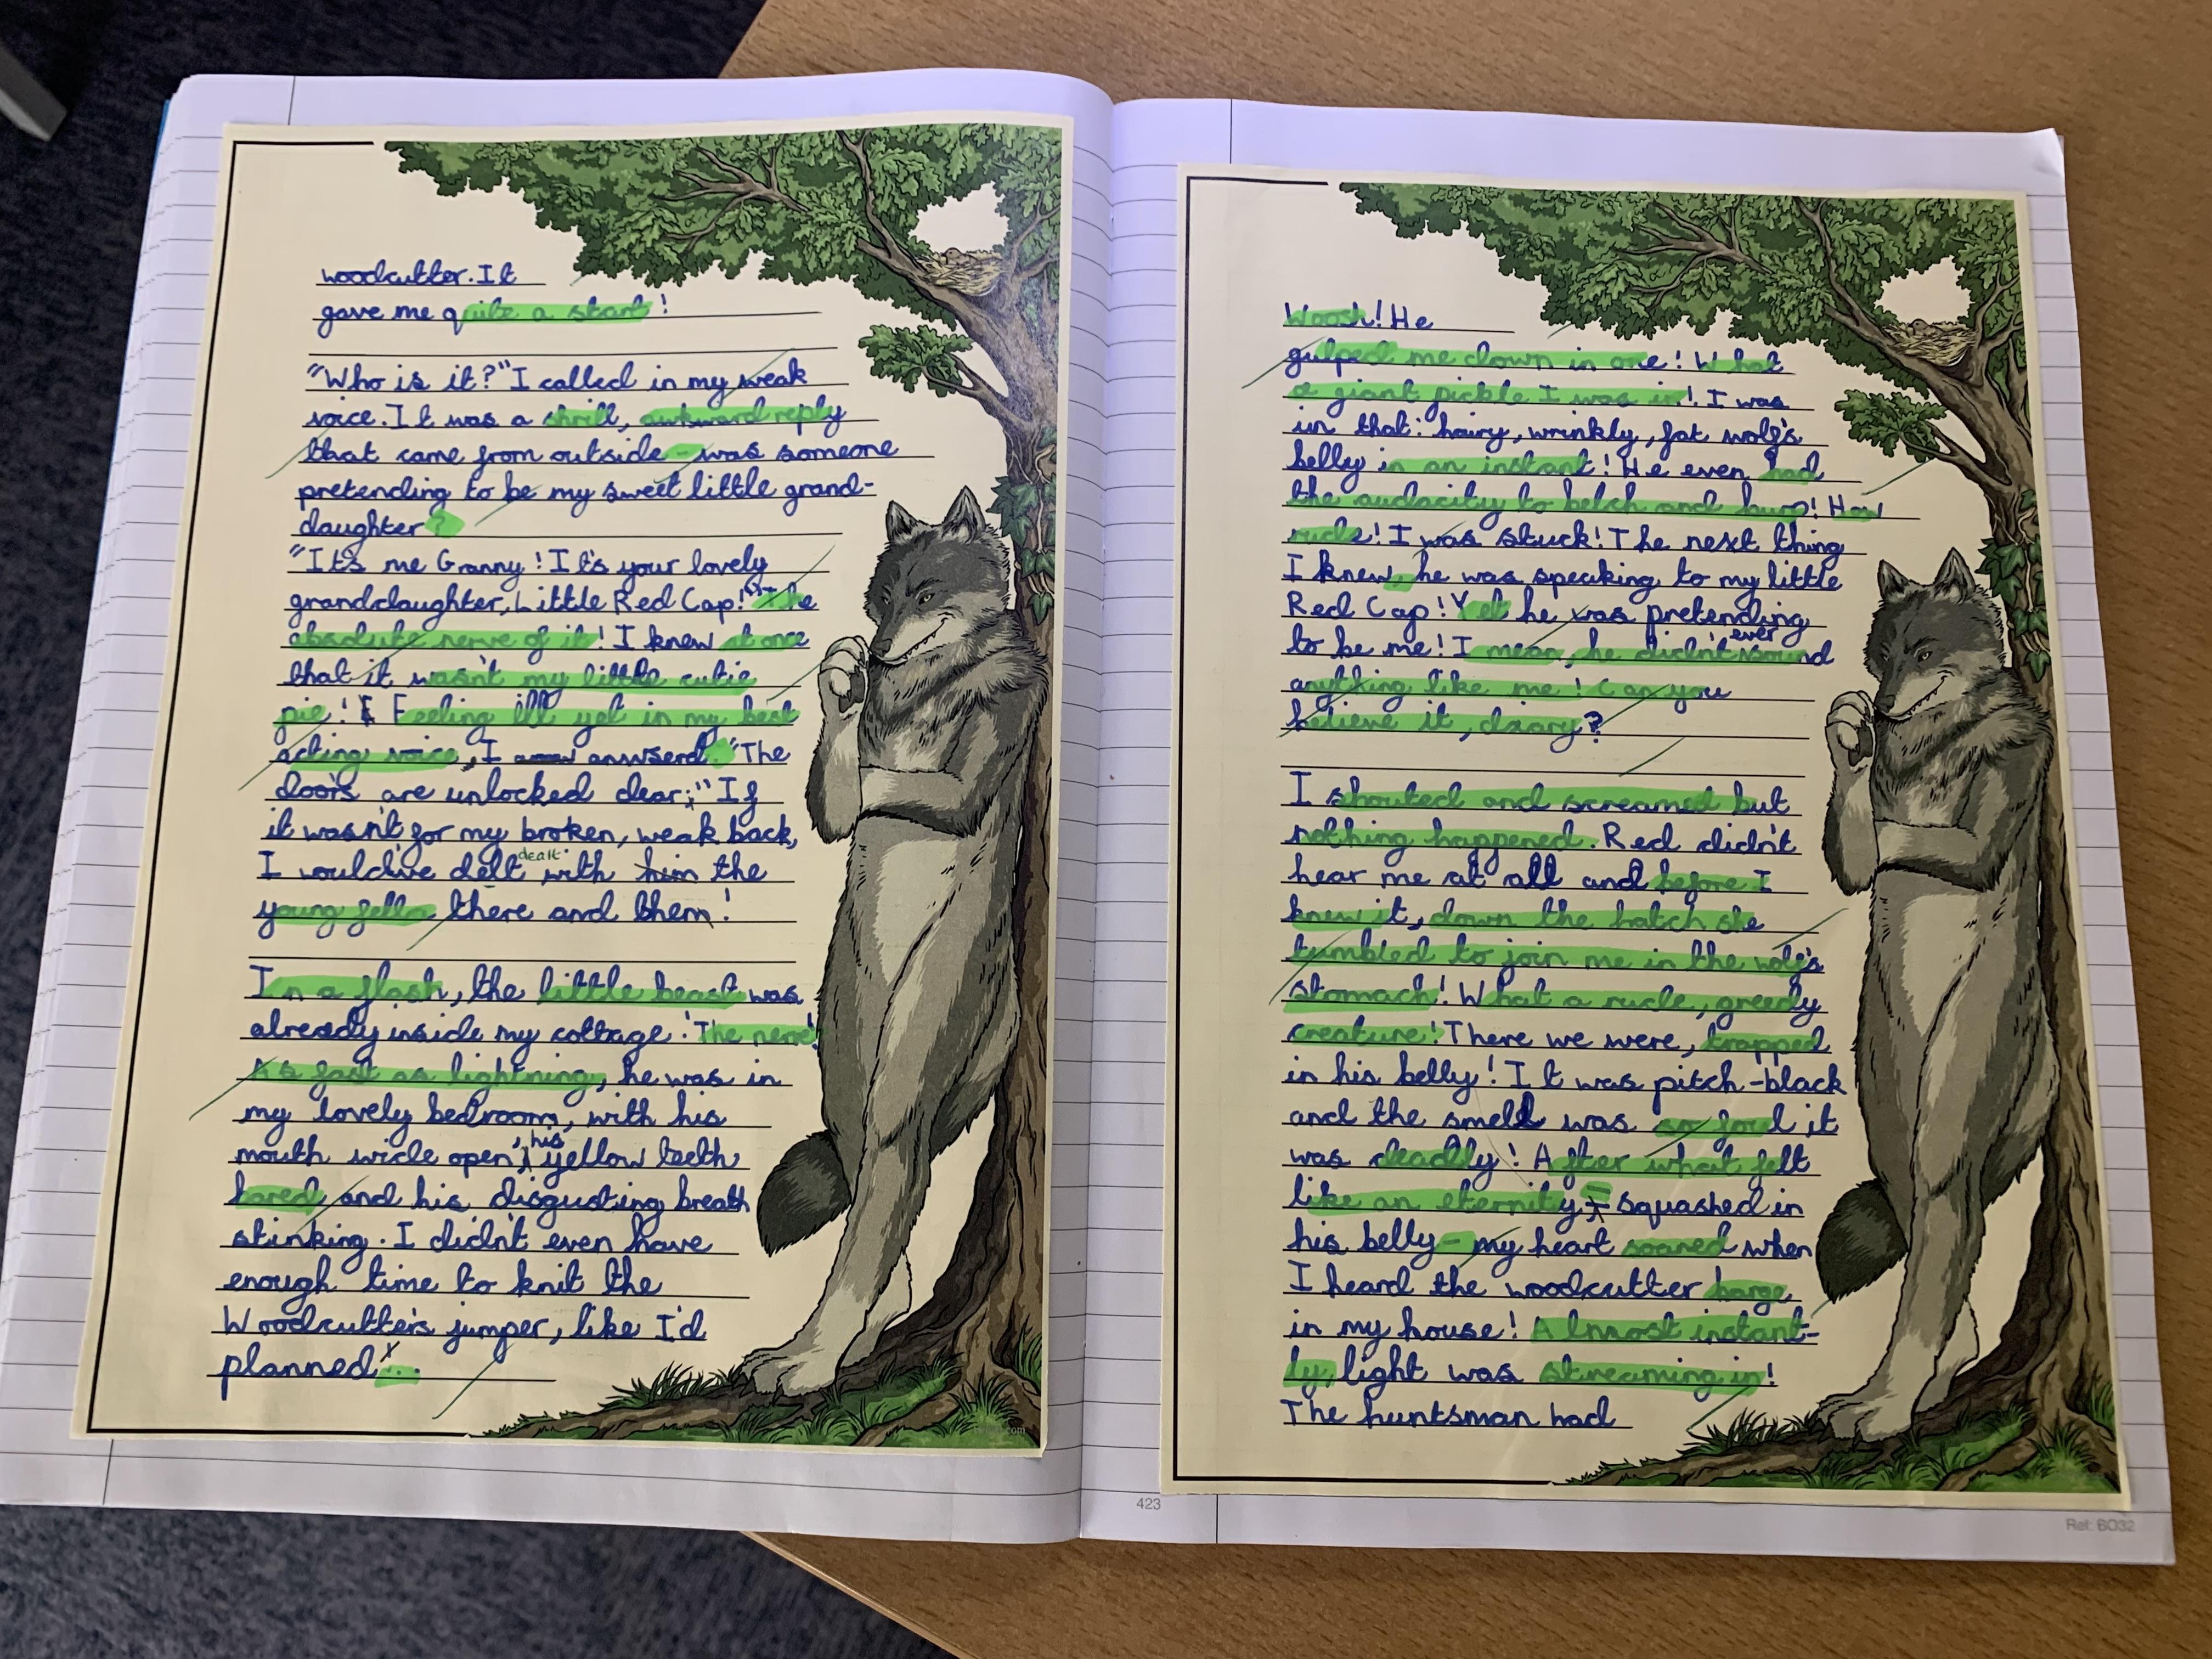 woodcutter. It
gave me quite a start!
"Who is it?" I called in my weak
voice. It was a shrill, awkward reply
that came from outside - was someone
pretending to be my sweet little grand-
daughter?
"It's me Granny! It's your lovely
granddaughter, Little Red Cap!" The
absolute nerve of it! I knew at once
that it wasn't my little cutie
pie! Feeling ill yet in my best
acting voice, I answserd: "The
doors are unlocked dear;" If
it wasn't for my broken, weak back,
dealt
I would've delt with him the
young fella there and them!
In a flash, the little beast was
already inside my cottage. 'The nerve!'
As fast as lightning, he was in
my lovely bedroom, with his
mouth wide open, his yellow teeth
bared and his disgusting breath
stinking. I didn't even have
enough time to knit the
Woodcutter's jumper, like I'd
planned...
Woosh! He
gulped me down in one! What
a giant pickle I was in! I was
in that: hairy, wrinkly, fat wolf's
belly in an instant! He even had
the audacity to belch and burp! How
rude! I was stuck! The next thing
I knew, he was speaking to my little
Red Cap! Yet he was pretending
to be me! I mean, he didn't ever sound
anything like me! Can you
believe it, diary?
I shouted and screamed but
nothing happened. Red didn't
hear me at all and before I
knew it, down the hatch she
tumbled to join me in the wolf's
stomach! What a rude, greedy
creature! There we were, trapped
in his belly! It was pitch-black
and the smell was so foul it
was deadly! After what felt
like an eternity - squashed in
his belly - my heart soared when
I heard the woodcutter barge
in my house! Almost instant-
ly, light was streaming in!
The huntsman had
423
Ref: BO32